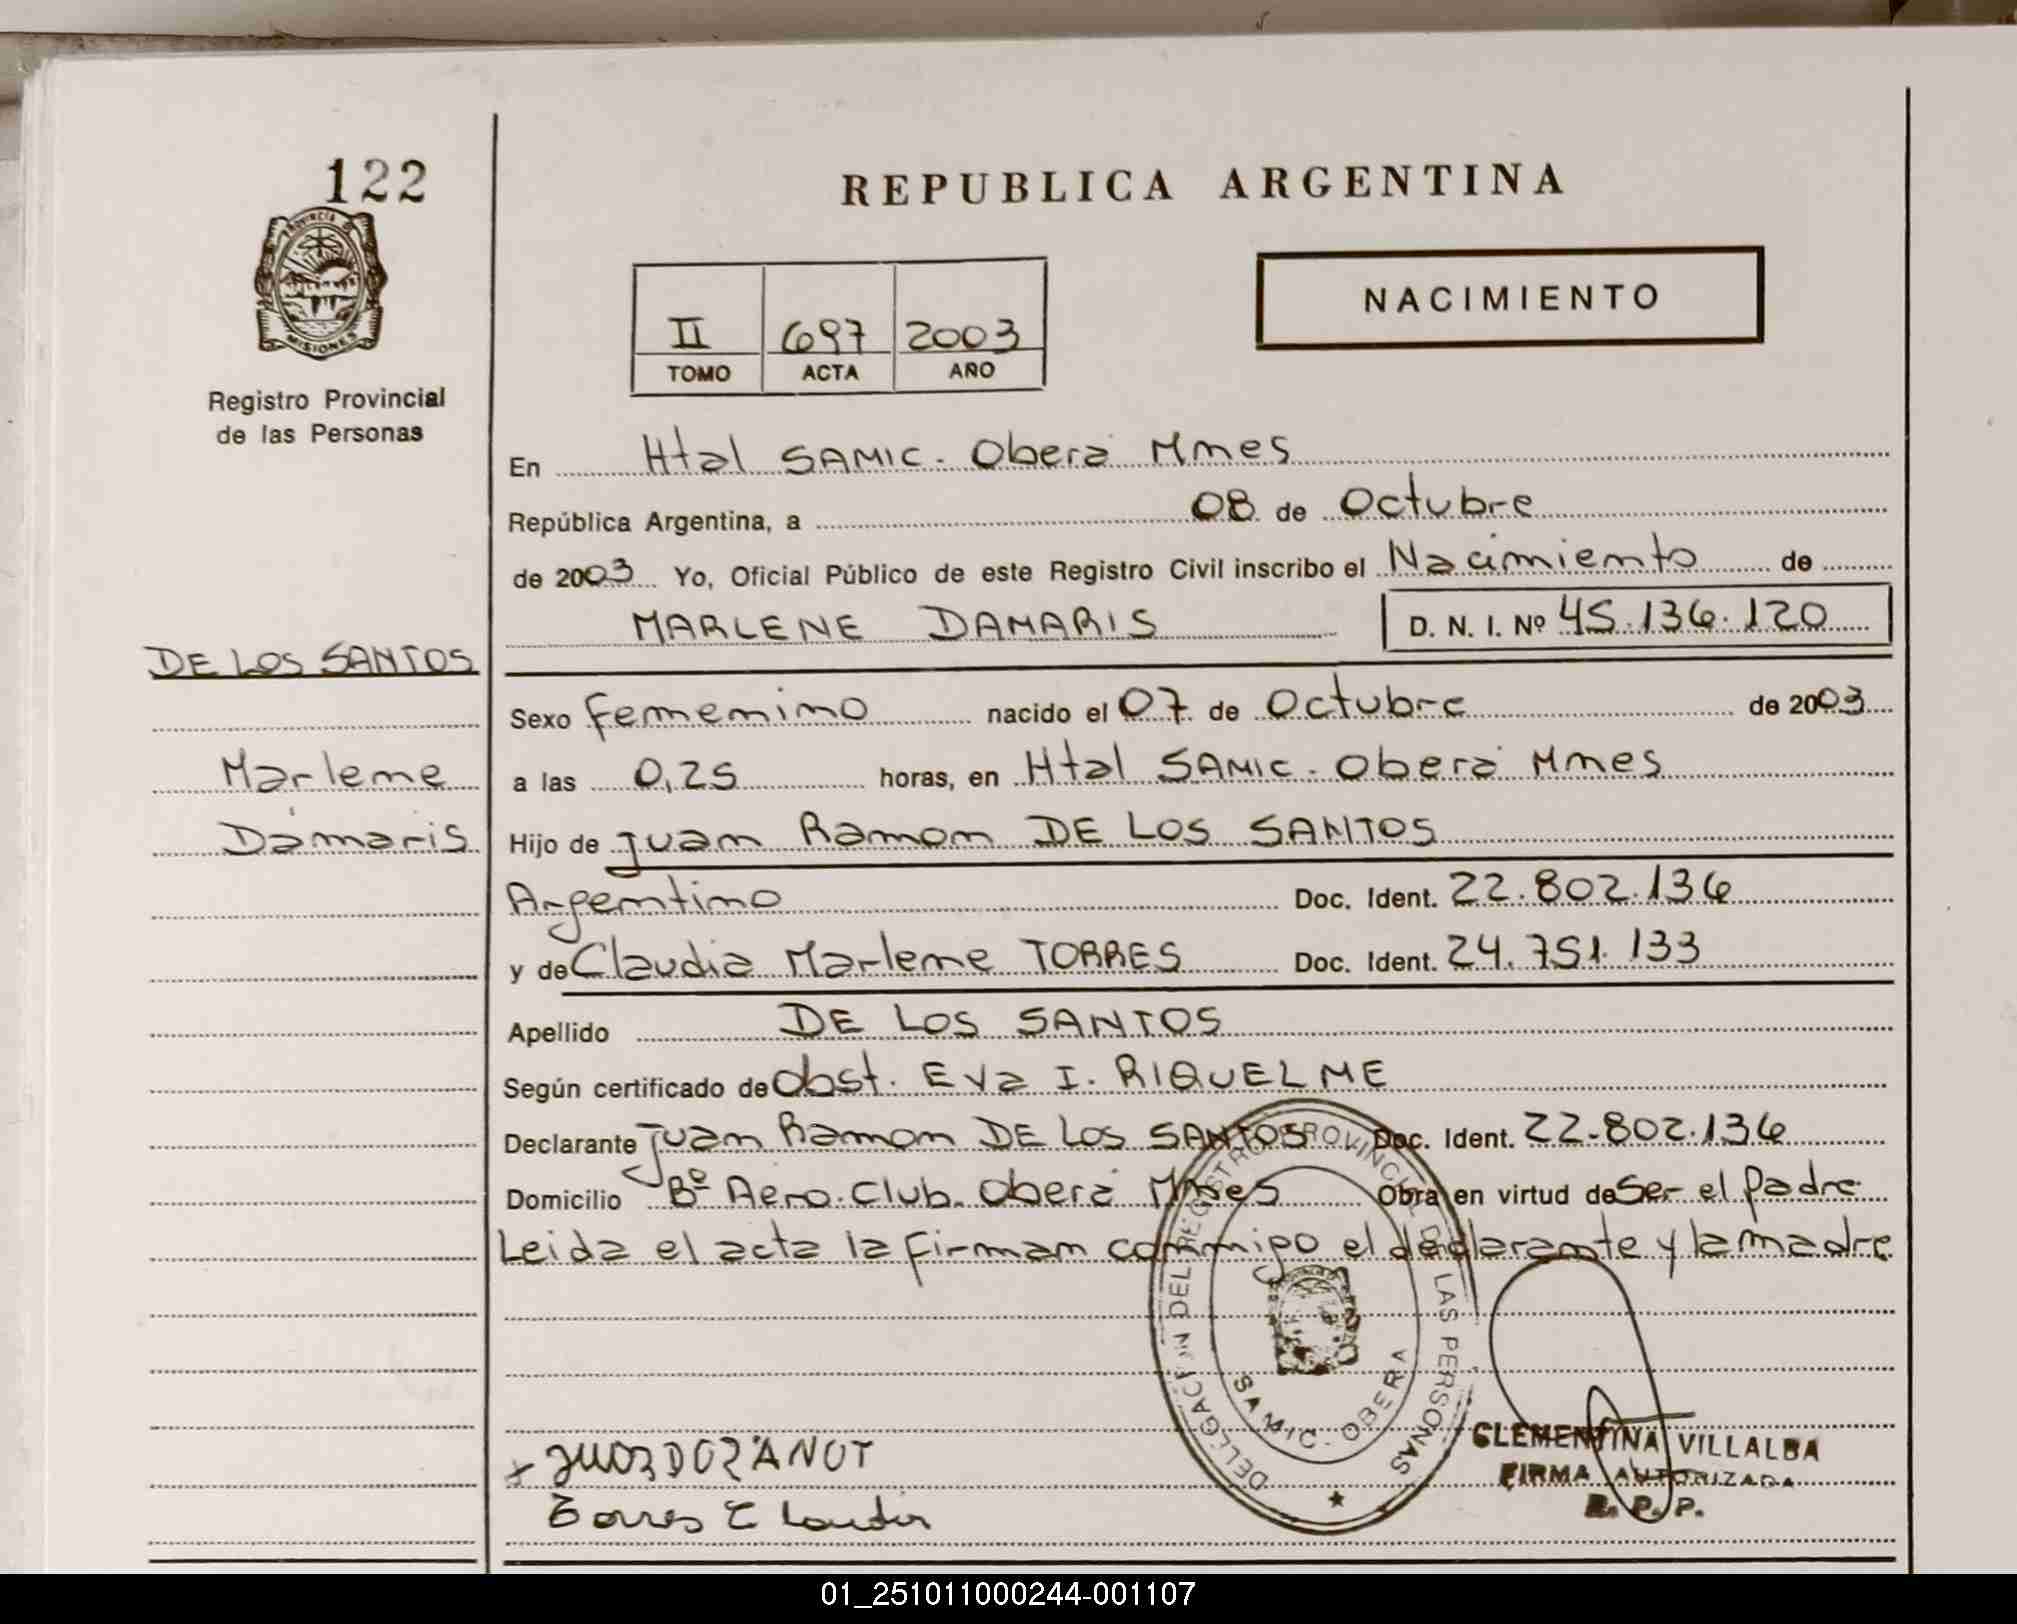 122
PROVINCIA
MISIONES
Registro Provincial
de las Personas
DE LOS SANTOS
Marlene
Dámaris
REPUBLICA ARGENTINA
NACIMIENTO
II 697 2003
TOMO ACTA AÑO
En Htal SAMIC. Oberá Mnes
República Argentina, a 08 de Octubre
de 2003 Yo, Oficial Público de este Registro Civil inscribo el Nacimiento de
MARLENE DAMARIS D. N. I. Nº 45.136.120
Sexo Femenino nacido el 07 de Octubre de 2003
a las 0,25 horas, en Htal SAMIC. Oberá Mnes
Hijo de Juan Ramon DE LOS SANTOS
Argentino Doc. Ident. 22.802.136
y de Claudia Marlene TORRES Doc. Ident. 24.751.133
Apellido DE LOS SANTOS
Según certificado de Obst. Eva I. RIQUELME
Declarante Juan Ramon DE LOS SANTOS Doc. Ident. 22.802.136
Domicilio Bº Aero.Club. Oberá Mnes Obra en virtud de Ser el Padre
Leida el acta la firman conmigo el declarante y la madre
DELEGACION DEL REGISTRO PROVINCIAL DE LAS PERSONAS
SAMIC - OBERA
CLEMENTINA VILLALBA
FIRMA AUTORIZADA
R. P. P.
Torres Claudia
01_251011000244-001107